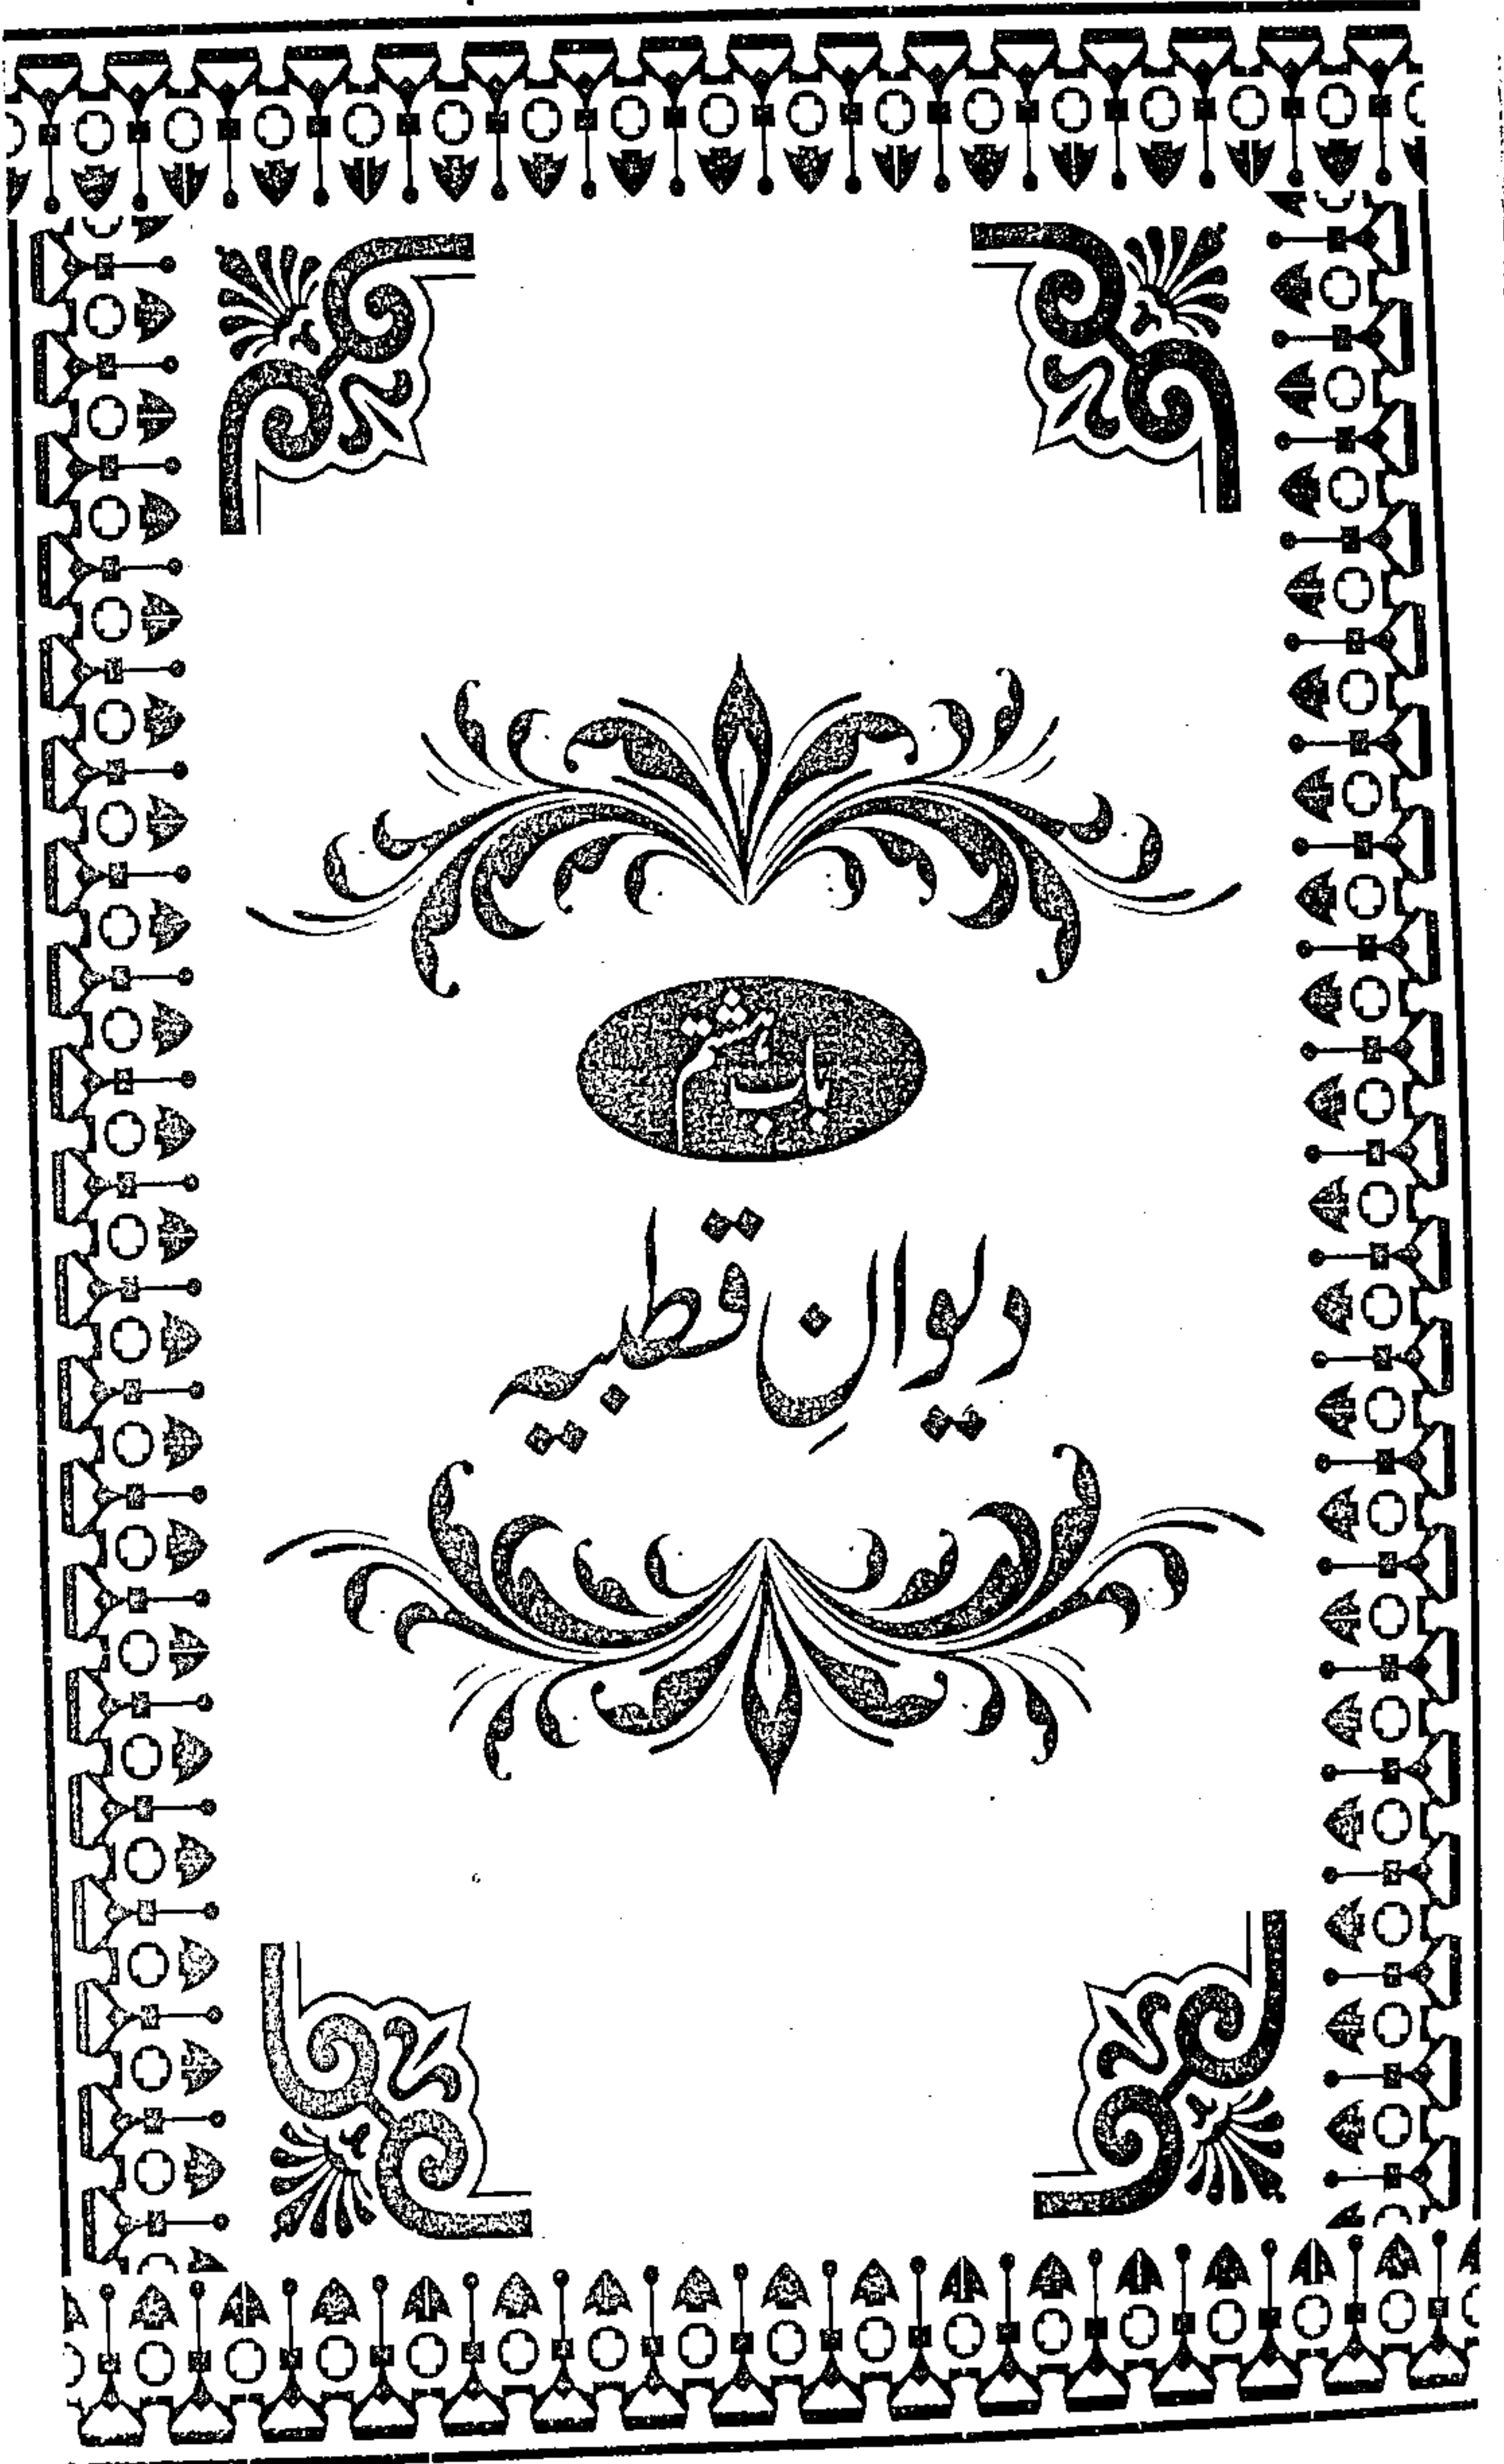 باب ہشتم
دیوانِ قطبیہ